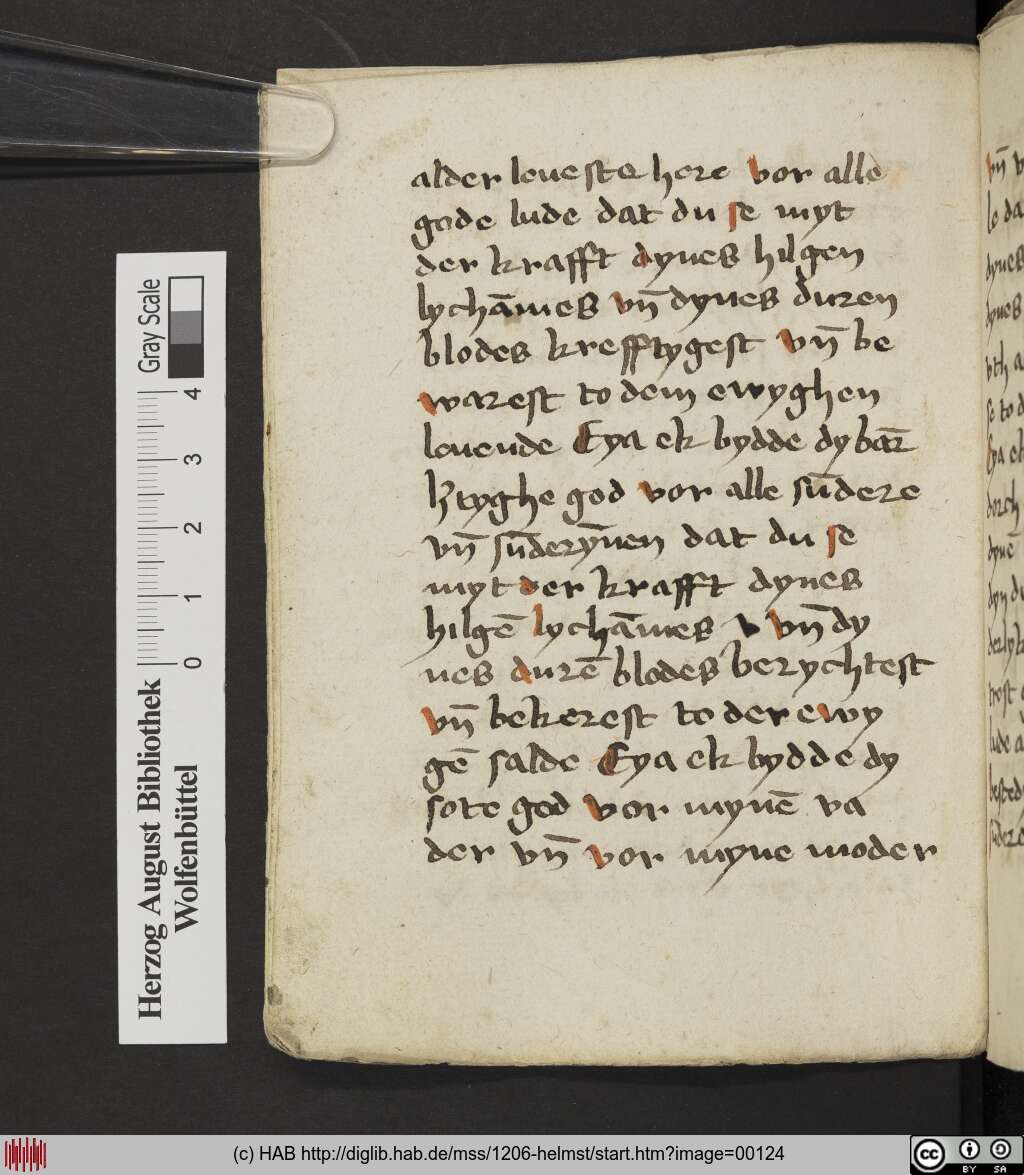 alder loueste here vor alle
gode lude dat du se myt
der krafft dynes hilgen
lychāmes vn̄ dynes duren
blodes krefftygest vn̄ be
warest to dem ewyghen
leuende Eya ek bydde dy bar̄
htyghe god vor alle sūdere
vn̄ sūderȳnen dat du se
myt der krafft dynes
hilgē lychāmes v vn̄ dy
nes durē blodes berychtest
vn̄ bekerest to der ewy
gē salde Eya ek bydde dy
sote god vor mynē va
der vn̄ vor myne moder
Herzog August Bibliothek
Wolfenbüttel
0 1 2 3 4
Gray Scale
vn̄ v
le da
dynes
dynes
vth a
se to d
Eya ek
dorch
dynē
dyn du
trost
lude
(c) HAB http://diglib.hab.de/mss/1206-helmst/start.htm?image=00124
cc BY SA